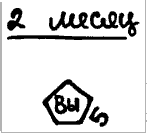 2 месяц
Вы 5